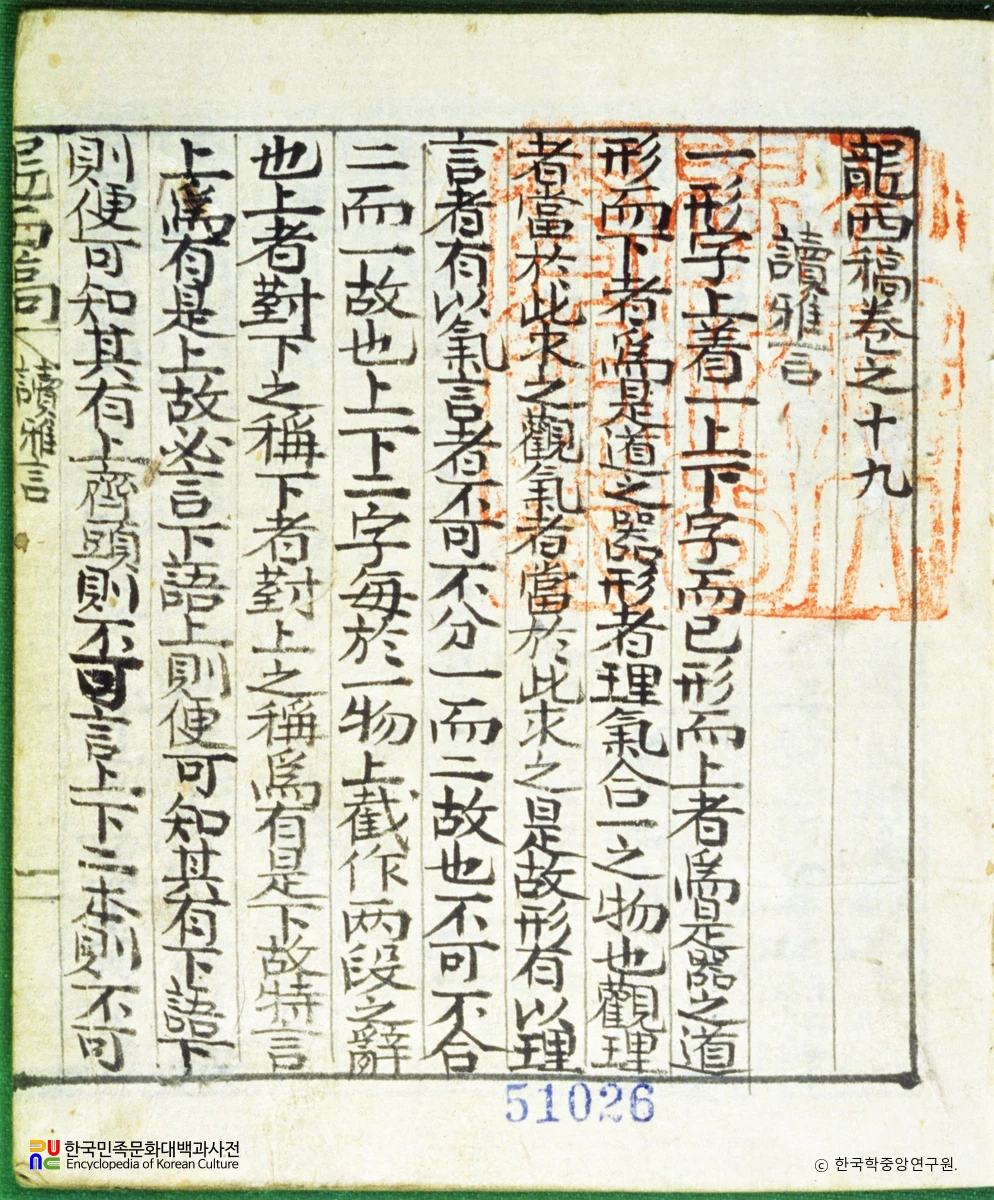 龍西稿卷之十九
讀雅言
一形字上着一上下字而已形而上者爲是器之道
形而下者爲是道之器形者理氣合一之物也觀理
者當於此求之觀氣者當於此求之是故形有以理
言者有以氣言者不可不分一而二故也不可不合
二而一故也上下二字每於一物上截作兩段之辭
也上者對下之稱下者對上之稱爲有是下故特言
上爲有是上故必言下語上則便可知其有下語下
則便可知其有上齊頭則不可言上下二本則不可
讀雅言
一
51026
한국민족문화대백과사전
Encyclopedia of Korean Culture
ⓒ 한국학중앙연구원.